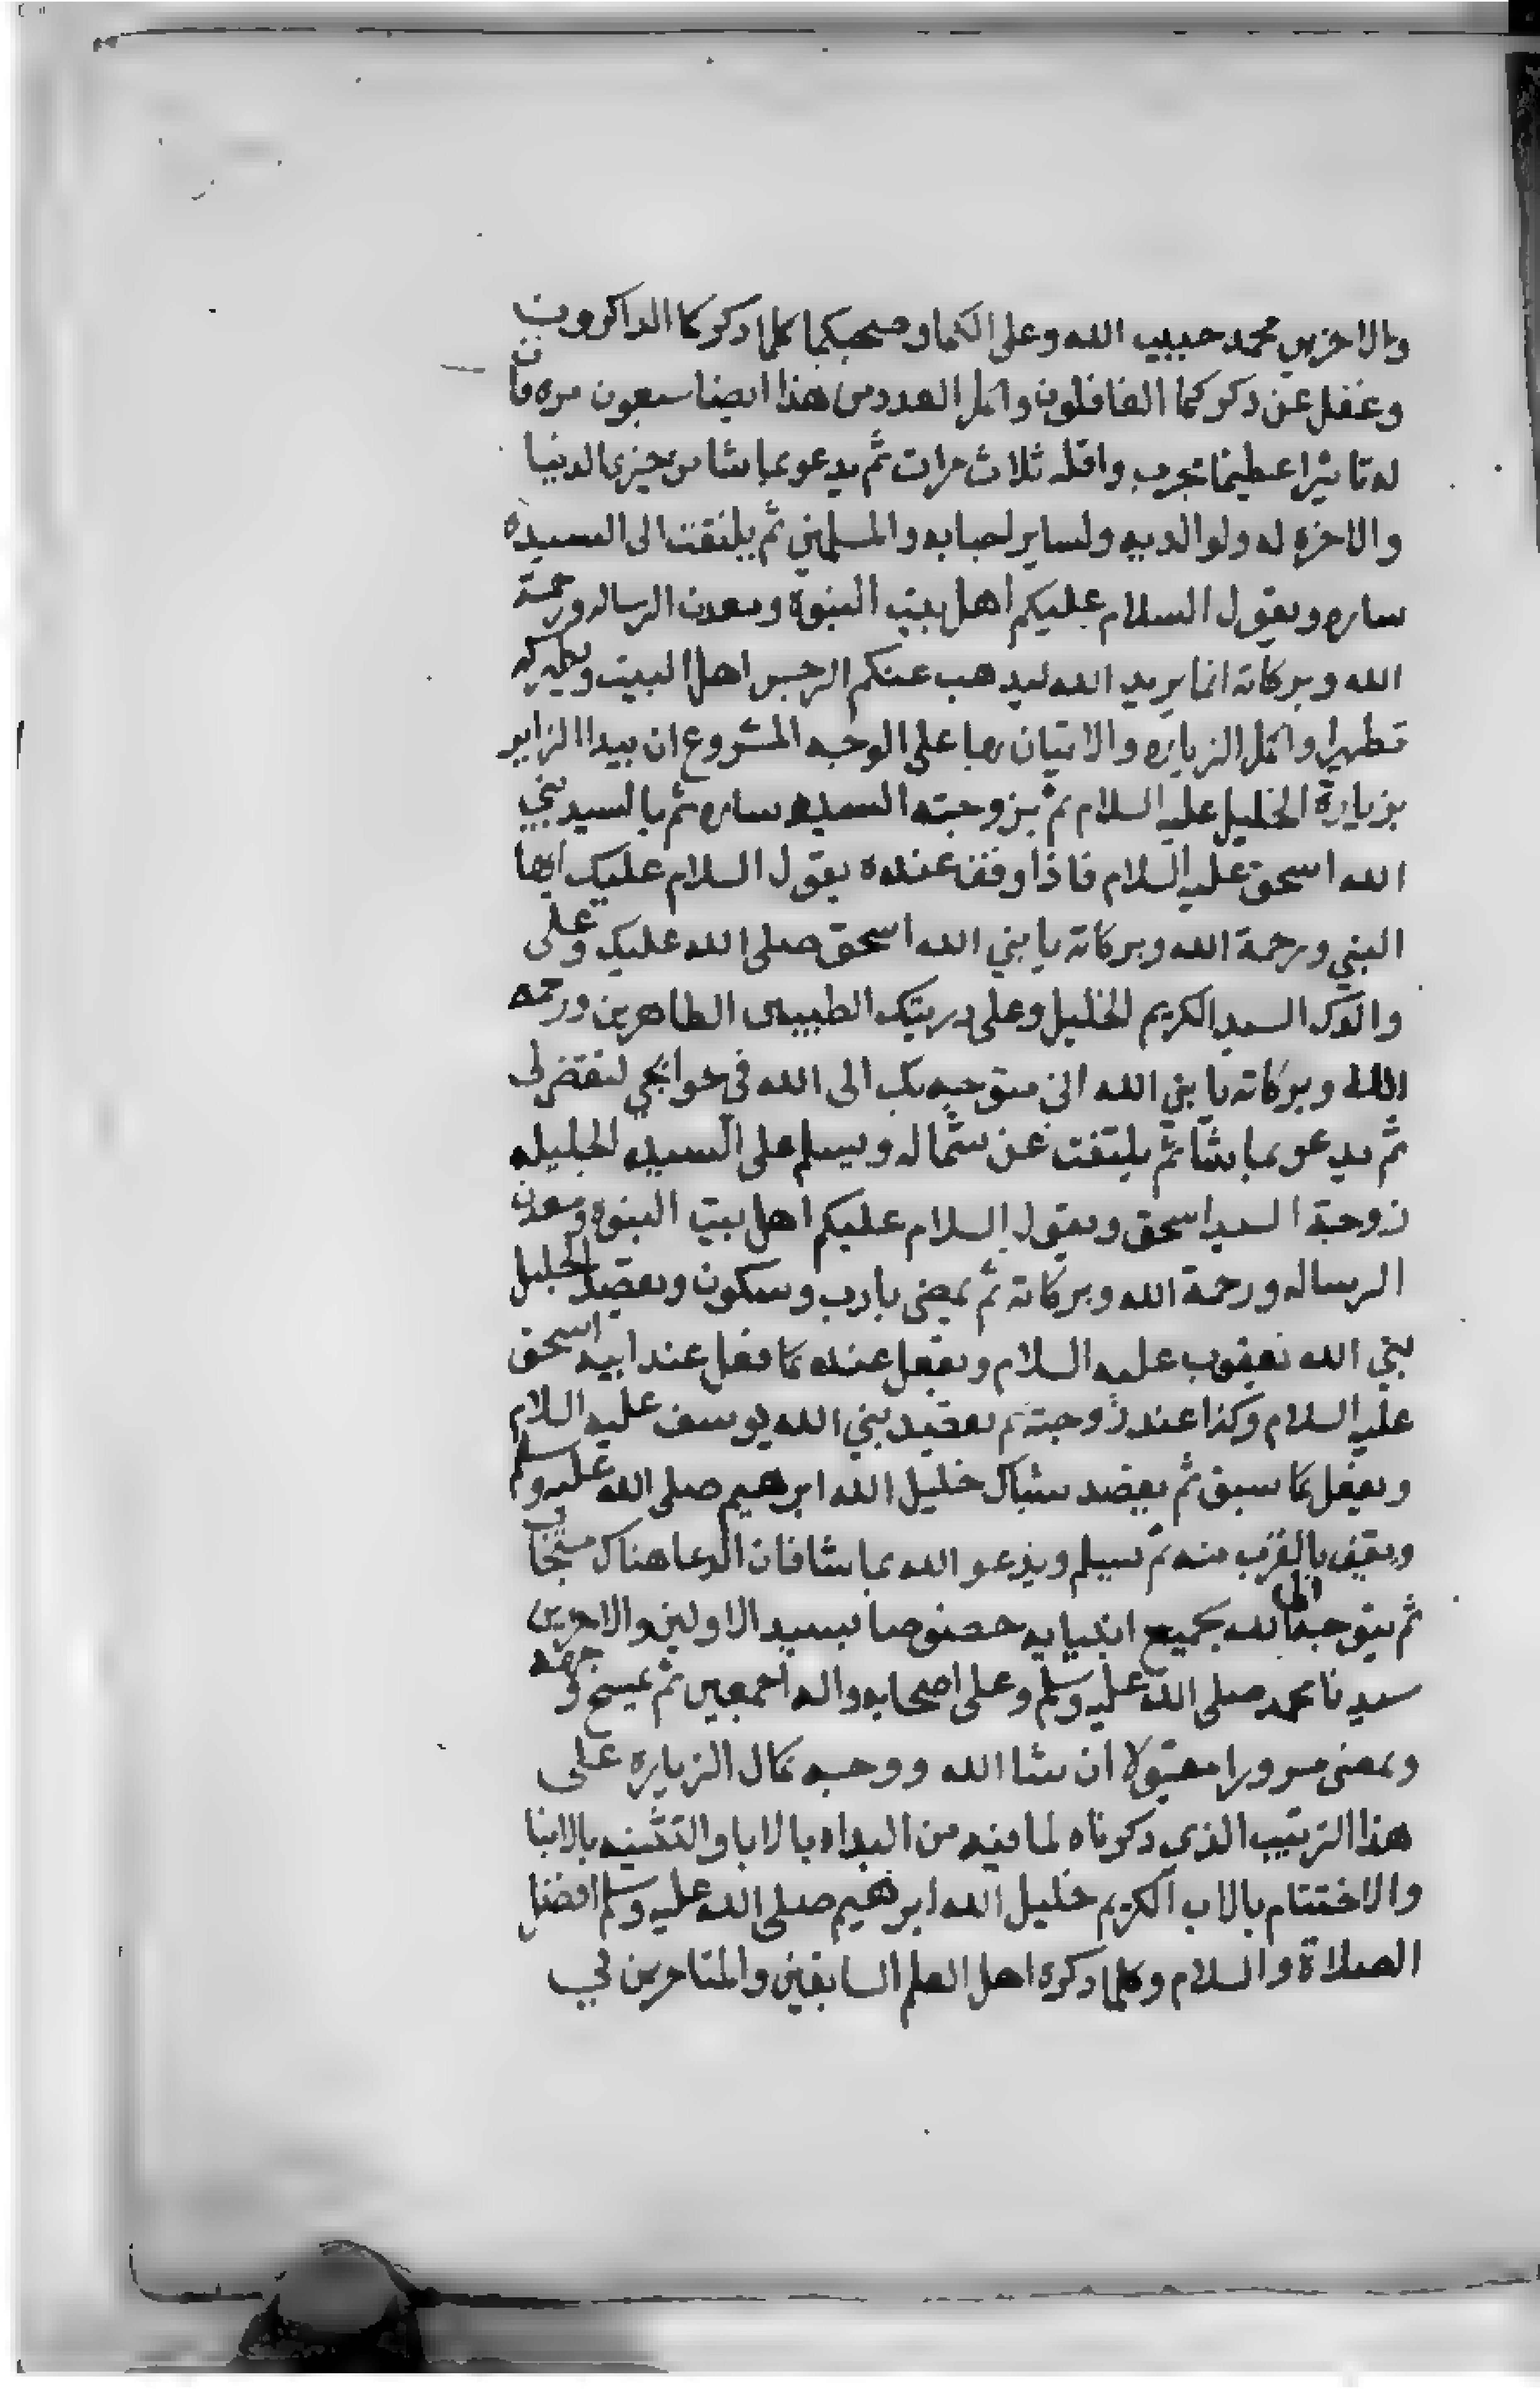 والاخرين محمد حبيب الله وعلى الكما وصحبكما كلما ذكركما الذاكرون
وغفل عن ذكركما الغافلون واكمل العدد من هذا ايضا سبعون مره فان
له تاثيرا عظيما تجرب واقله ثلاث مرات ثم يدعو بما شا من خيري الدنيا
والاخره له ولوالديه ولساير احبابه والمسلمين ثم يلتفت الى السيده
ساره ويقول السلام عليكم اهل بيت النبوة ومعدن الرساله ورحمة
الله وبركاته انما يريد الله ليذهب عنكم الرجس اهل البيت ويطهركم
تطهيرا واكمل الزياره والاتيان بها على الوجه المشروع ان يبدا الزاير
بزيارة الخليل عليه السلام ثم بزوجته السيده ساره ثم بالسيد نبي
الله اسحق عليه السلام فاذا وقف عنده يقول السلام عليك ايها
النبي ورحمة الله وبركاته يا نبي الله اسحق صلى الله عليك وعلى
والدك السيد الكريم الخليل وعلى ذريتك الطيبين الطاهرين ورحمه
الله وبركاته يا نبي الله اني متوجه بك الى الله في حوايجي لتقضى لي
ثم يدعو بما يشا ثم يلتفت عن شماله ويسلم على السيده الجليله
زوجة السيد اسحق ويقول السلام عليكم اهل بيت النبوه ومعدن
الرساله ورحمة الله وبركاته ثم يمضي بادب وسكون ويقصد الجليل
نبي الله يعقوب عليه السلام ويفعل عنده كما فعل عند ابيه اسحق
عليه السلام وكذا عند زوجته ثم يقصد نبي الله يوسف عليه السلام
ويفعل كما سبق ثم يقصد شباك خليل الله ابرهيم صلى الله عليه وسلم
ويقف بالقرب منه ثم يسلم ويدعو الله بما شا فان الدعا هناك مستجاب
ثم يتوجه الى الله بجميع انبيايه خصوصا بسيد الاولين والاخرين
سيدنا محمد صلى الله عليه وسلم وعلى اصحابه واله اجمعين ثم يمسح وجهه
ويمضى مسرورا مقبولا ان شا الله ووجه كمال الزياره على
هذا الترتيب الذى ذكرناه لما فيه من البداه بالابا والتثنيه بالابنا
والاختتام بالاب الكريم خليل الله ابرهيم صلى الله عليه وسلم افضل
الصلاة والسلام وكلما ذكره اهل العلم السابقين والمتاخرين في